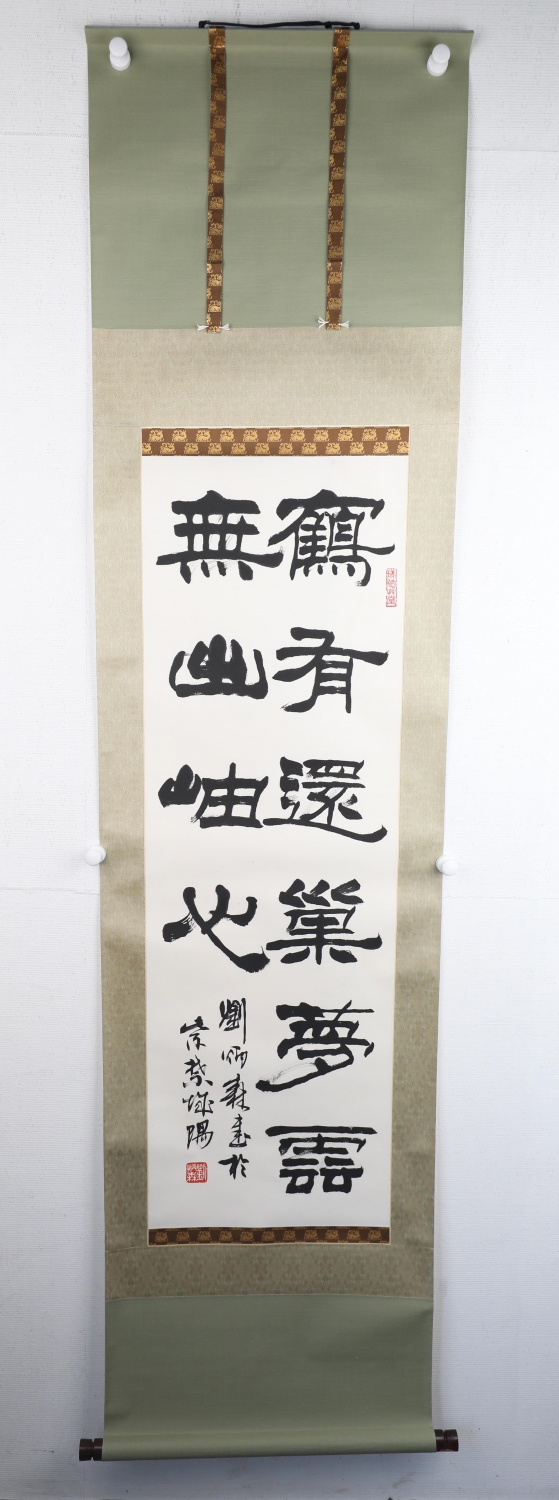 鶴有還巢夢雲
無出岫心
劉炳森書於
紫禁城陽